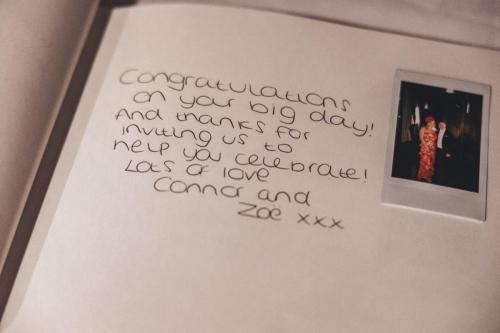 Congratulations
on your big day!
And thanks for
inviting us to
help you celebrate!
Lots of love
Connor and
Zoë xxx